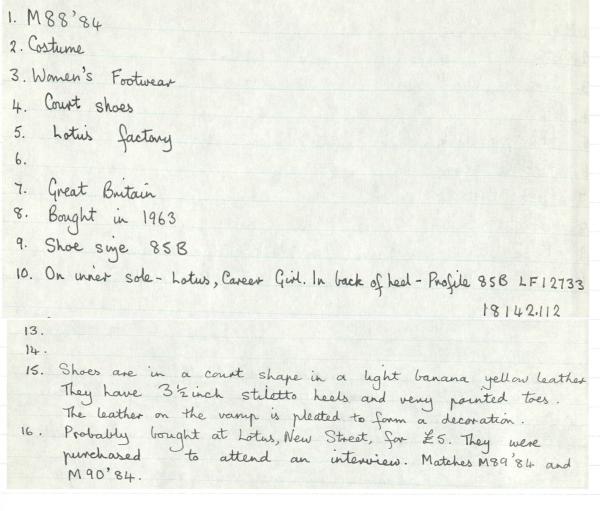 1. M88'84
2. Costume
3. Women's Footwear
4. Court shoes
5. Lotus factory
6.
7. Great Britain
8. Bought in 1963
9. Shoe size 85B
10. On inner sole - Lotus, Career Girl. In back of heel - Profile 85B LF12733
18142.112
13.
14.
15. Shoes are in a court shape in a light banana yellow leather
They have 3½ inch stiletto heels and very pointed toes.
The leather on the vamp is pleated to form a decoration.
16. Probably bought at Lotus, New Street, for £5. They were
purchased to attend an interview. Matches M89'84 and
M90'84.